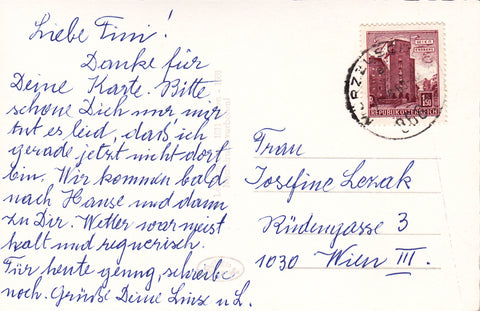 Liebe Fini!
Danke für
Deine Karte. Bitte
schone Dich nur mir
tut es leid, daß ich
gerade jetzt nicht dort
bin. Wir kommen bald
nach Hause und dann
zu Dir. Wetter war meist
kalt und regnerisch.
Für heute genug, schreibe
noch. Grüße Deine Linz u L.
REPUBLIK ÖSTERREICH
1.50
MÜRZZUSCHLAG
Frau
Josefine Lezak
Rüdengasse 3
1030 Wien III.